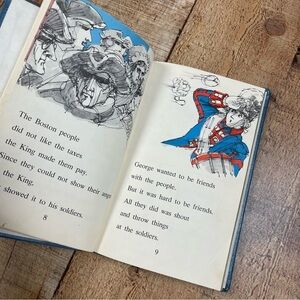 The Boston people
did not like the taxes
the King made them pay.
Since they could not show their anger
the King,
showed it to his soldiers.
8
George wanted to be friends
with the people.
But it was hard to be friends.
All they did was shout
and throw things
at the soldiers.
9